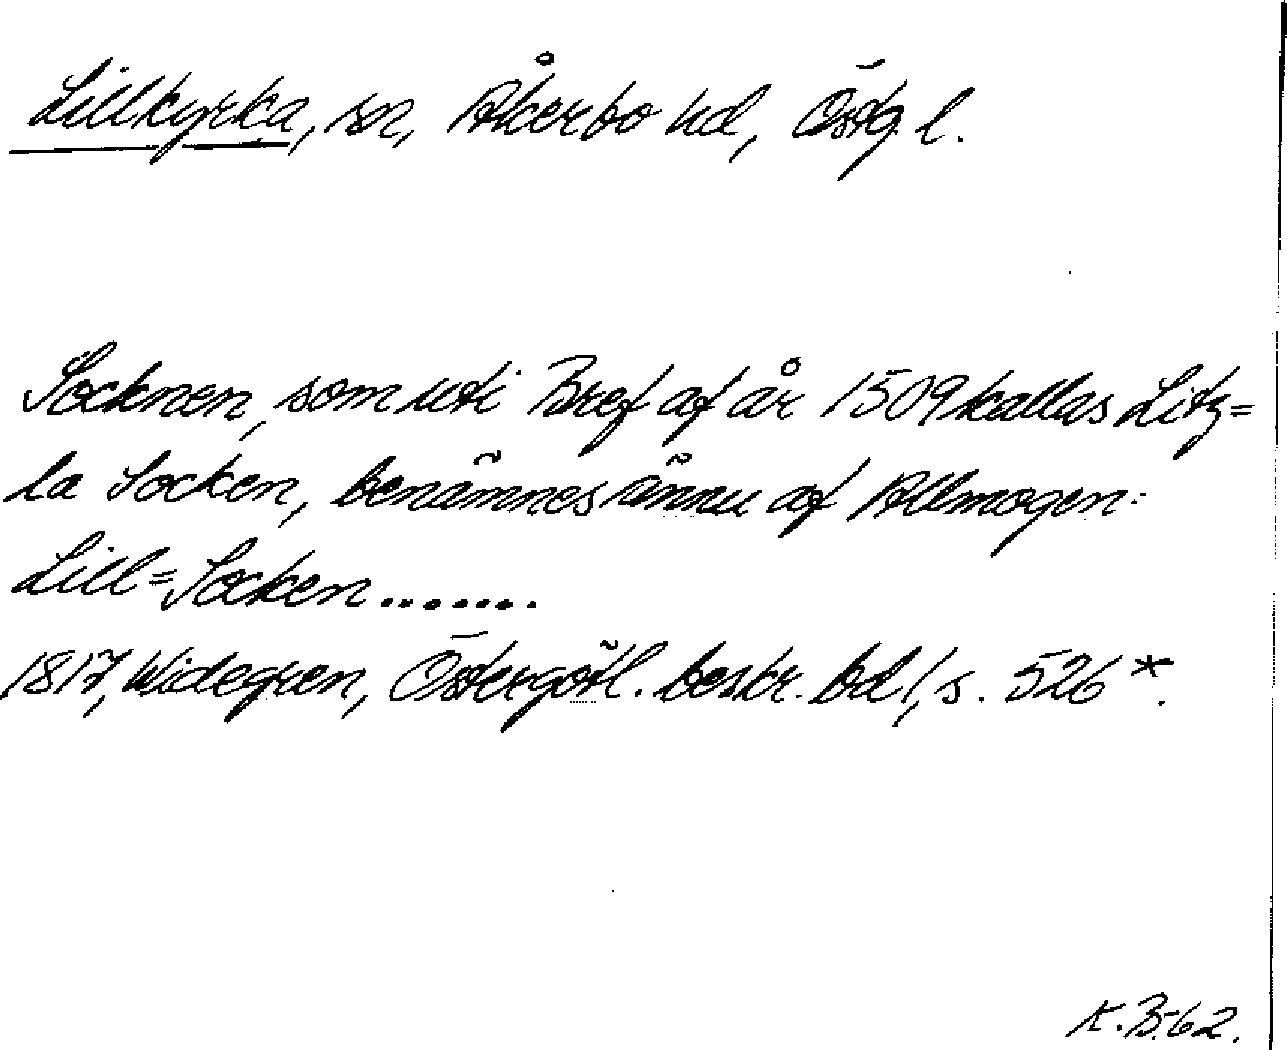 Lillkyrka, sn, Åkerbo hd, Östg. l.
Socknen, som uti Bref af år 1509 kallas Litz=
la Socken, benämnes ännu af Allmogen:
Lill=Socken.......
1817, Widegren, Östergötl. beskr. bd 1, s. 526*.
K.B.-62.